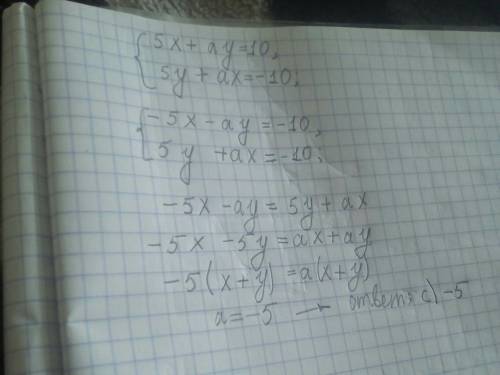 {5x + ay = 10,
5y + ax = -10;
{-5x - ay = -10,
5y + ax = -10;
-5x - ay = 5y + ax
-5x - 5y = ax + ay
-5(x+y) = a(x+y)
a = -5 → ответ: c) -5